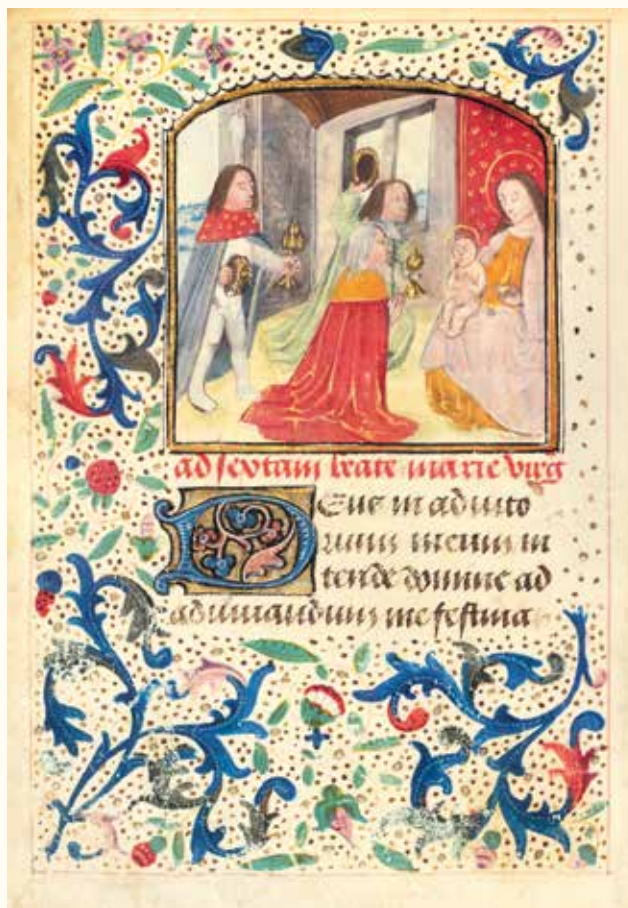 ad sextam beate marie virg
Deus in adiuto
rium meum in
tende domine ad
adiuuandum me festina